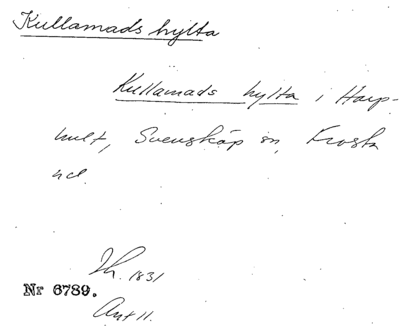 Kullamads hylta
Kullamads hylta i Harp-
hult, Svensköp sn, Frosta
hd.
Th. 1831
Nr 6789.
Ant 11.